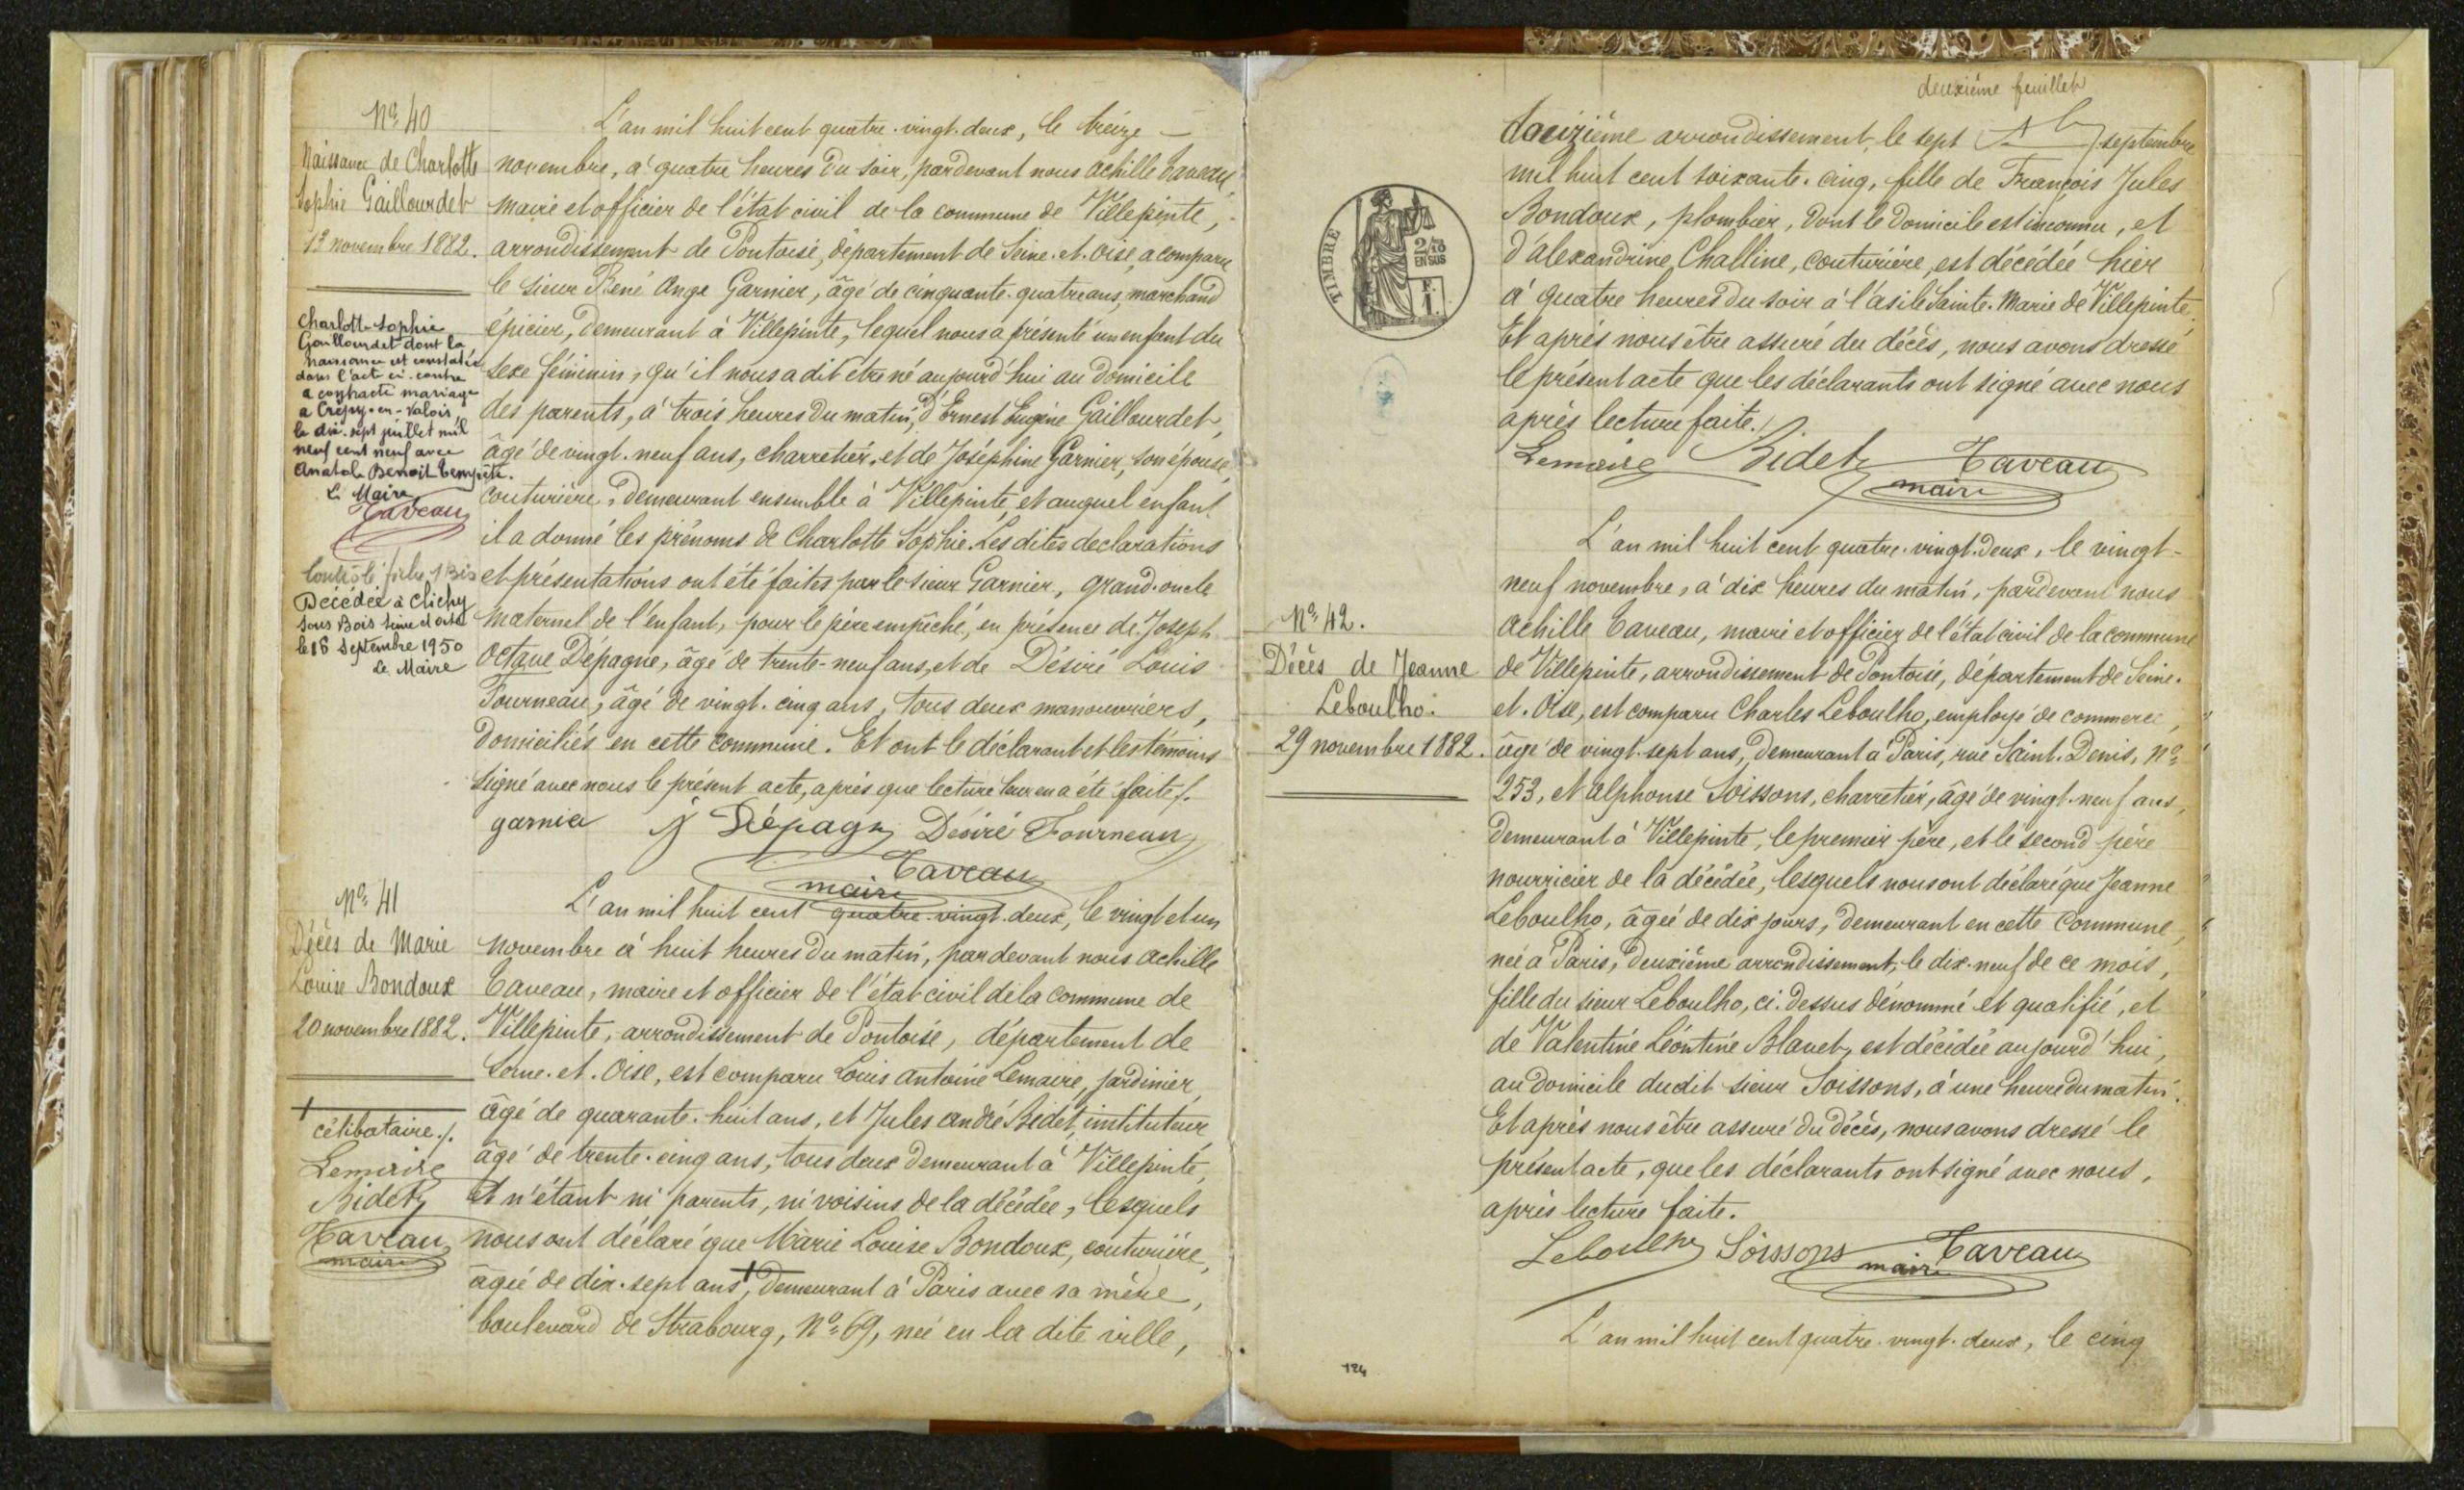 Nº 40
Naissance de Charlotte
Sophie Gaillourdet
13 novembre 1882.
Charlotte Sophie
Gaillourdet dont la
naissance est constatée
dans l'acte ci-contre
a contracté mariage
à Crépy-en-Valois
le dix-sept juillet mil
neuf cent neuf avec
Anatole Benoit Tempête.
Le Maire
Taveau
Contrôlé fiche 1 Bis
Décédée à Clichy
sous Bois Seine et Oise
le 16 Septembre 1950
Le Maire
L'an mil huit cent quatre-vingt-deux, le treize
novembre, à quatre heures du soir, pardevant nous Achille Taveau
maire et officier de l'état civil de la commune de Villepinte,
arrondissement de Pontoise, département de Seine-et-Oise, a comparu
le sieur René Ange Garnier, âgé de cinquante-quatre ans, marchand
épicier, demeurant à Villepinte, lequel nous a présenté un enfant du
sexe féminin, qu'il nous a dit être né aujourd'hui au domicile
des parents, à trois heures du matin, d'Ernest Eugène Gaillourdet,
âgé de vingt-neuf ans, charretier, et de Joséphine Garnier, son épouse,
couturière, demeurant ensemble à Villepinte, et auquel enfant
il a donné les prénoms de Charlotte Sophie. Les dites déclarations
et présentations ont été faites par le sieur Garnier, grand-oncle
maternel de l'enfant, pour le père empêché, en présence de Joseph
Octave Dépagne, âgé de trente-neuf ans, et de Désiré Louis
Fourneau, âgé de vingt-cinq ans, tous deux manouvriers,
domiciliés en cette commune. Et ont le déclarant et les témoins
signé avec nous le présent acte, après que lecture leur en a été faite./.
garnier J Dépagn Désiré Fourneau
Taveau
maire
Nº 41
Décès de Marie
Louise Bondoux
20 novembre 1882.
célibataire./.
Lemaire
Bidet
Taveau
maire
L'an mil huit cent quatre-vingt-deux, le vingt et un
novembre à huit heures du matin, par devant nous Achille
Taveau, maire et officier de l'état civil de la commune de
Villepinte, arrondissement de Pontoise, département de
Seine-et-Oise, est comparu Louis Antoine Lemaire, jardinier,
âgé de quarante-huit ans, et Jules André Bidet, instituteur
âgé de trente-cinq ans, tous deux demeurant à Villepinte,
et n'étant ni parents, ni voisins de la décédée, lesquels
nous ont déclaré que Marie Louise Bondoux, couturière,
âgée de dix-sept ans, demeurant à Paris avec sa mère,
boulevard de Strabourg, Nº 69, née en la dite ville,
deuxième feuillet
arrondissement, le sept septembre
mil huit cent soixante-cinq, fille de François Jules
Bondoux, plombier, dont le domicile est inconnu, et
d'Alexandrine Challine, couturière, est décédée hier
à quatre heures du soir à l'asile Sainte-Marie de Villepinte.
Et après nous être assuré du décès, nous avons dressé
le présent acte que les déclarants ont signé avec nous
après lecture faite./.
Lemaire Bidet Taveau
maire
TIMBRE
2/10
EN SUS
F.
1.
Nº 42.
Décès de Jeanne
Leboulho.
29 novembre 1882.
L'an mil huit cent quatre-vingt-deux, le vingt-
neuf novembre, à dix heures du matin, pardevant nous
Achille Taveau, maire et officier de l'état civil de la commune
de Villepinte, arrondissement de Pontoise, département de Seine-
et-Oise, est comparu Charles Leboulho, employé de commerce,
âgé de vingt-sept ans, demeurant à Paris, rue Saint-Denis, Nº
253, et Alphonse Soissons, charretier, âgé de vingt-neuf ans,
demeurant à Villepinte, le premier père, et le second père
nourricier de la décédée, lesquels nous ont déclaré que Jeanne
Leboulho, âgée de dix jours, demeurant en cette commune,
née à Paris, deuxième arrondissement, le dix-neuf de ce mois,
fille du sieur Leboulho, ci-dessus dénommé et qualifié, et
de Valentine Léontine Blanet, est décédée aujourd'hui,
au domicile dudit sieur Soissons, à une heure du matin.
Et après nous être assuré du décès, nous avons dressé le
présent acte, que les déclarants ont signé avec nous,
après lecture faite.
Leboulho Soissons Taveau
maire
L'an mil huit cent quatre-vingt-deux, le cinq
124